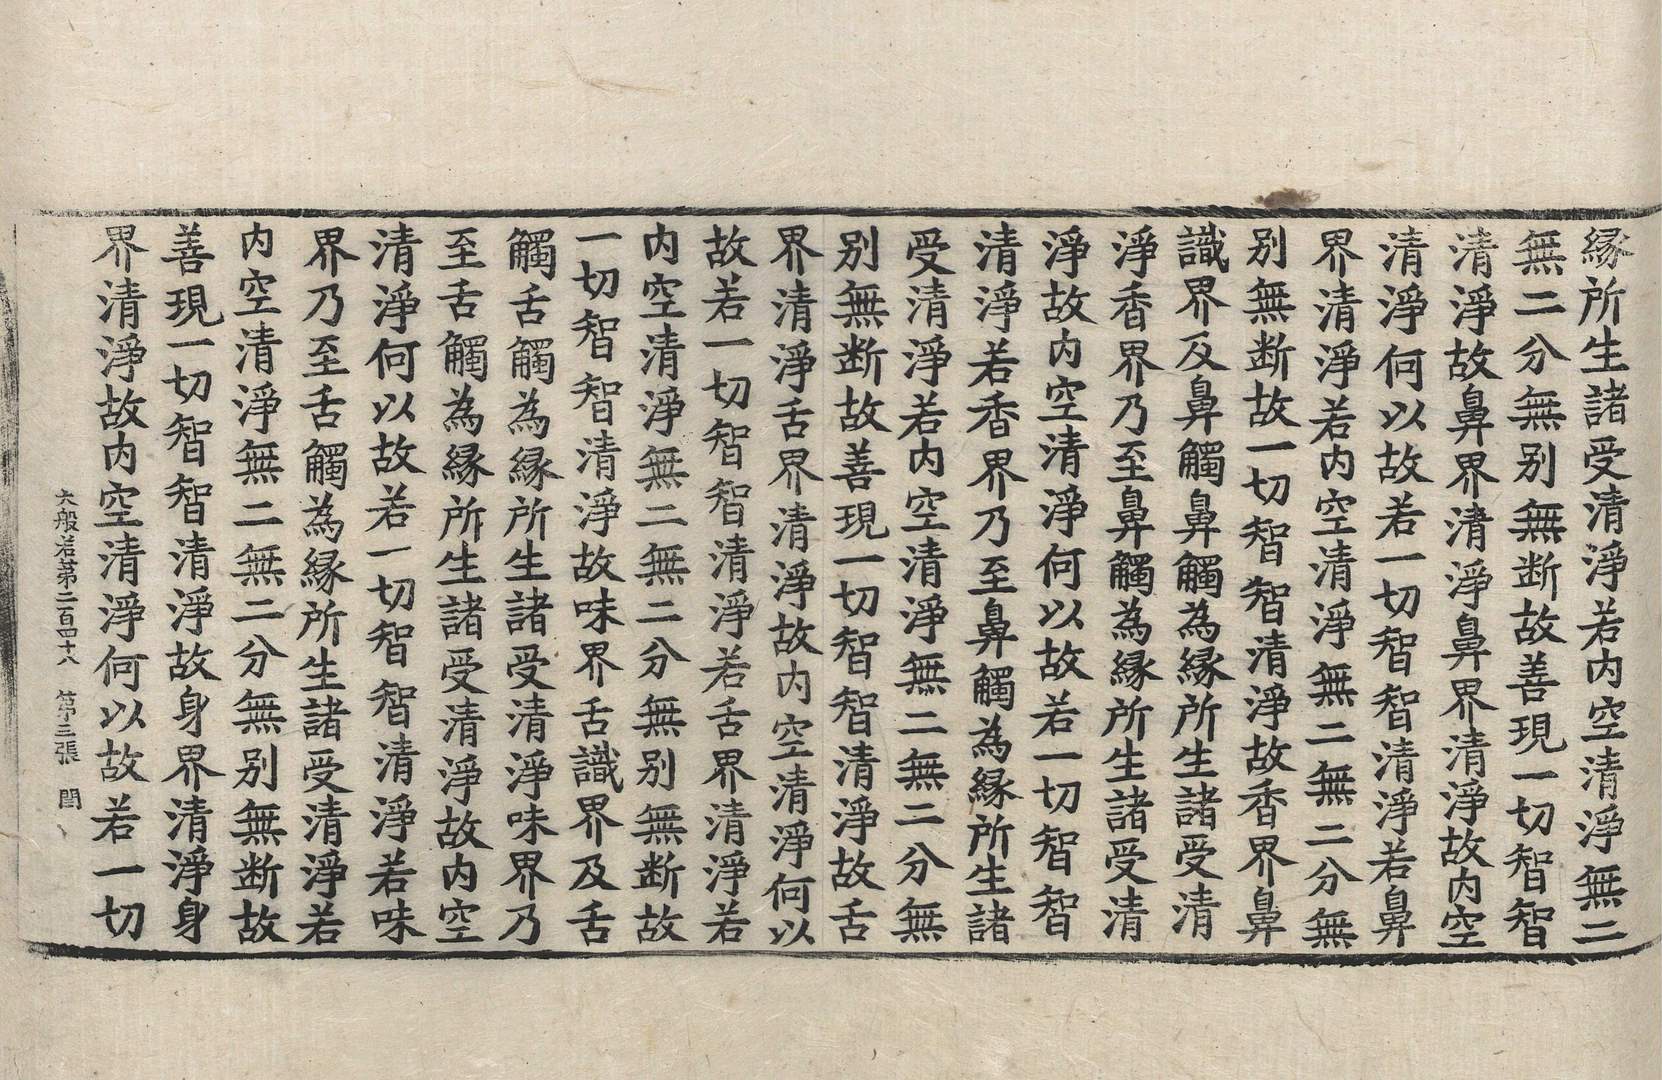 縁所生諸受清淨若内空清淨無二
無二分無别無断故善現一切智智
清淨故鼻界清淨鼻界清淨故内空
清淨何以故若一切智智清淨若鼻
界清淨若内空清淨無二無二分無
别無断故一切智智清淨故香界鼻
識界及鼻觸鼻觸為縁所生諸受清
淨香界乃至鼻觸為縁所生諸受清
淨故内空清淨何以故若一切智智
清淨若香界乃至鼻觸為縁所生諸
受清淨若内空清淨無二無二分無
别無断故善現一切智智清淨故舌
界清淨舌界清淨故内空清淨何以
故若一切智智清淨若舌界清淨若
内空清淨無二無二分無别無断故
一切智智清淨故味界舌識界及舌
觸舌觸為縁所生諸受清淨味界乃
至舌觸為縁所生諸受清淨故内空
清淨何以故若一切智智清淨若味
界乃至舌觸為縁所生諸受清淨若
内空清淨無二無二分無别無断故
善現一切智智清淨故身界清淨身
界清淨故内空清淨何以故若一切
大般若第二百四十八 第三張 閏